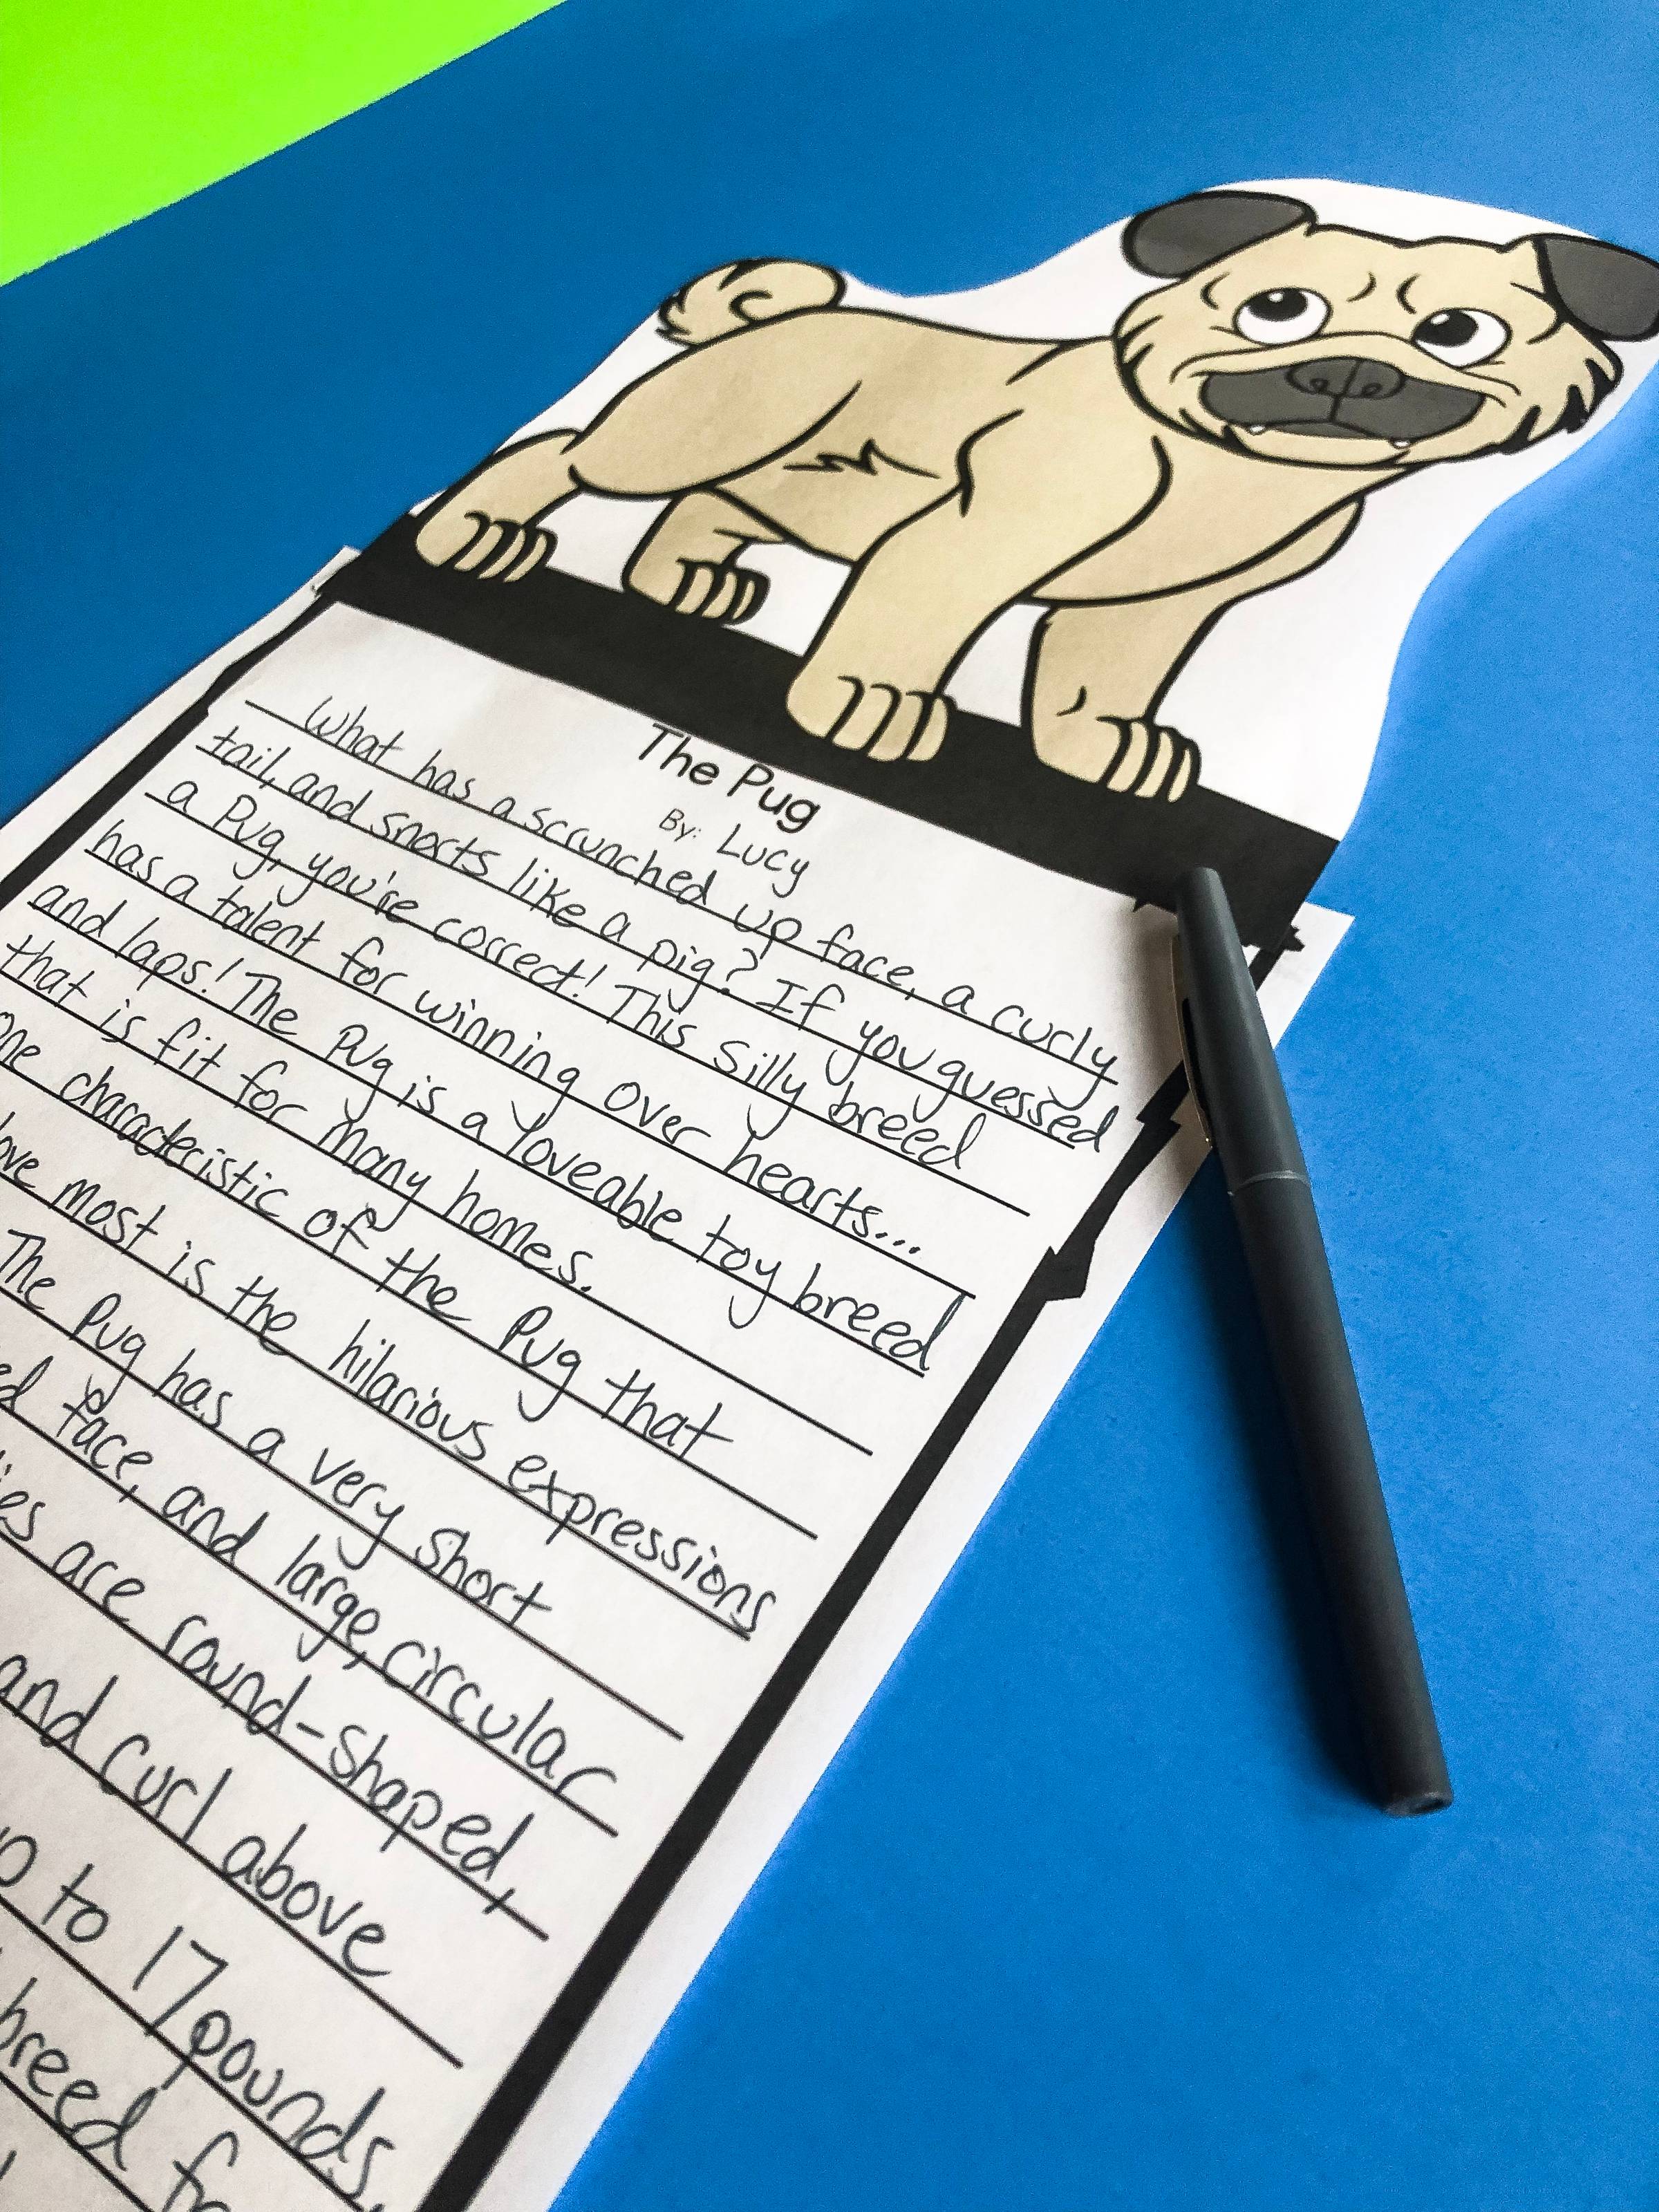 The Pug
By: Lucy
What has a scrunched up face, a curly
tail, and snorts like a pig? If you guessed
a Pug, you're correct! This silly breed
has a talent for winning over hearts...
and laps! The Pug is a loveable toy breed
that is fit for many homes.
One characteristic of the Pug that
most is the hilarious expressions
The Pug has a very short
face, and large, circular
are round-shaped,
and curl above
to 17 pounds.
breed